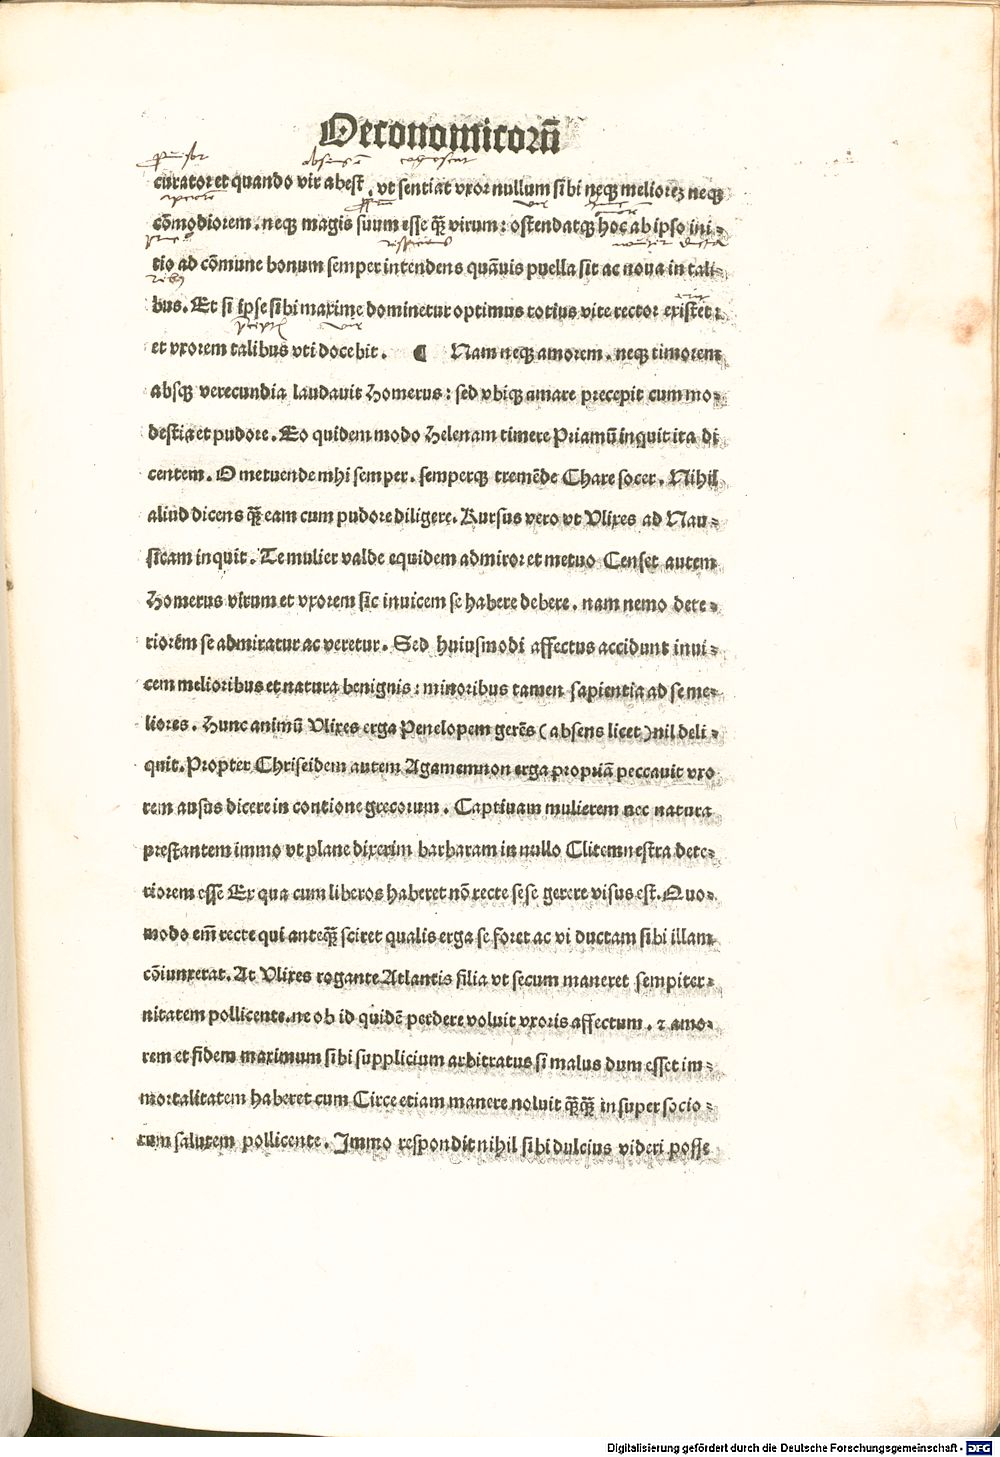 Oeconomicoꝝ̄
curator et quando vir abest, vt sentiat vxor nullum sibi neqꝫ melioreꝫ neqꝫ
cōmodiorem. neqꝫ magis suum esse qꝫ̄ virum: ostendatqꝫ hoc ab ipso ini⸗
tio ad cōmune bonum semper intendens quāuis puella sit ac noua in tali⸗
bus. Et si ipse sibi maxime dominetur optimus totius vite rector existet:
et vxorem talibus vti docebit. ¶ Nam neqꝫ amorem. neqꝫ timorem
absqꝫ verecundia laudauit Homerus: sed vbiqꝫ amare precepit cum mo⸗
destia et pudore. Eo quidem modo Helenam timere Priamū inquit ita di
centem. O metuende mhi semper. semperqꝫ tremēde Chare socer. Nihil
aliud dicens qꝫ̄ eam cum pudore diligere. Rursus vero vt Vlixes ad Nau⸗
sicam inquit. Te mulier valde equidem admiror et metuo Censet autem
Homerus virum et vxorem sic inuicem se habere debere. nam nemo dete⸗
riorem se admiratur ac veretur. Sed huiusmodi affectus accidunt inui⸗
cem melioribus et natura benignis: minoribus tamen sapientia ad se me⸗
liores. Hunc animū Vlixes erga Penelopem gerēs (absens licet) nil deli⸗
quit. Propter Chriseidem autem Agamemnon erga propriā peccauit vxo
rem ausus dicere in contione grecorum. Captiuam mulierem nec natura
prestantem immo vt plane dixerim barbaram in nullo Clitemnestra dete⸗
riorem esse Ex qua cum liberos haberet nō recte sese gerere visus est. Quo⸗
modo em̄ recte qui anteqꝫ̄ sciret qualis erga se foret ac vi ductam sibi illam
cōiunxerat. At Vlixes rogante Atlantis filia vt secum maneret sempiter⸗
nitatem pollicente. ne ob id quidē perdere voluit vxoris affectum. ⁊ amo⸗
rem et fidem maximum sibi supplicium arbitratus si malus dum esset im⸗
mortalitatem haberet cum Circe etiam manere noluit qꝫ̄qꝫ̄ in super socio⸗
rum salutem pollicente. Immo respondit nihil sibi dulcius videri posse
Digitalisierung gefördert durch die Deutsche Forschungsgemeinschaft - DFG